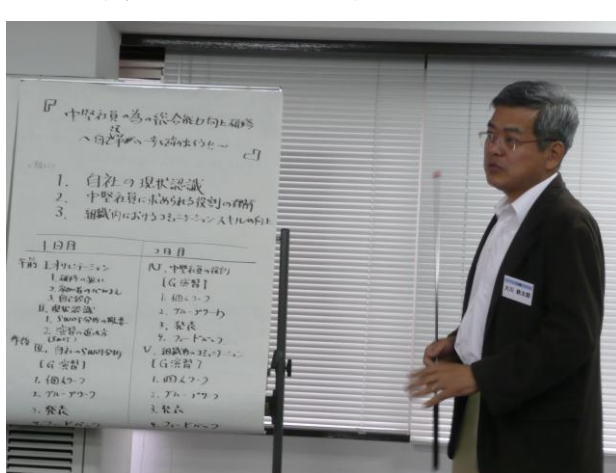 『中堅社員の為の総合能力向上研修
1. 自社の現状認識
2. 中堅社員に求められる役割の理解
3. 組織内におけるコミュニケーションスキルの向上
1日目
午前 I.オリエンテーション
1. 研修の狙い
3. 自己紹介
II. 現状認識
1. SWOT分析の概要
2. 演習の進め方
(SWOT)
午後
III. 自社のSWOT分析
[G演習]
1. 個人ワーク
2. グループワーク
3. 発表
4. フィードバック
2日目
IV. 中堅社員の役割
[G演習]
1. 個人ワーク
2. グループワーク
3. 発表
4. フィードバック
V. 組織内のコミュニケーション
[G演習]
1. 個人ワーク
2. グループワーク
3. 発表
4. フィードバック